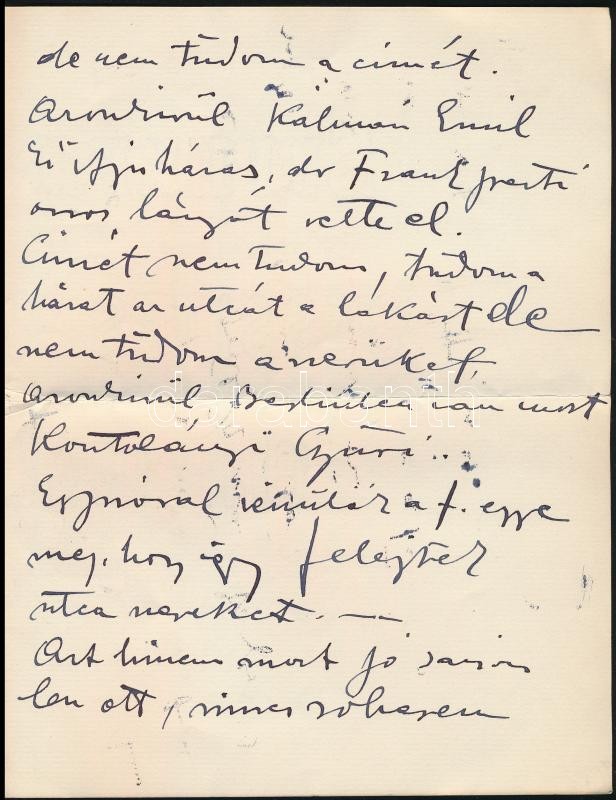 de nem tudom a címét.
Azonkívül Kálmán Emil
Ő ifju házas, dr Frank pesti
orvos lányát vette el.
Címét nem tudom, tudom a
házat az utcát a lakást de
nem tudom a nevüket,
azonkívül Berlinben van most
Kontolányi Gyuri..
Egyszóval rémitő a f. egye
meg, hogy így felejtek
utca neveket. —
Azt hiszem most jó saison
len ott, nincs sohasem
darabanth